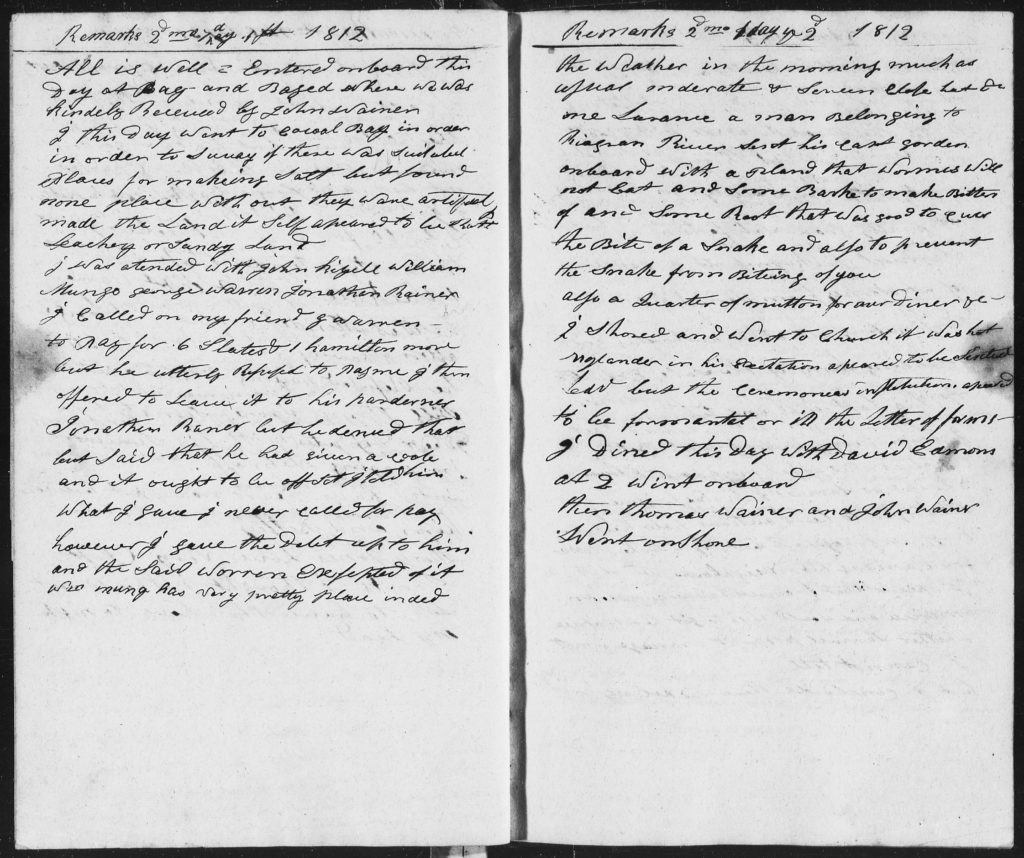 Remarks 2d mo 1st 1812
All is well = Entered onboard this
Day at Bay and Based where we was
kindely Received by John Wainer
I this Day went to Cowal Bay in order
in order to Survay if there was Suitabel
Places for makeing Salt but found
none place with out they ware artifisal
made the Land it Self apeared to be
Leachey or Sandy Land
I was atended with John Kizell William
Mungo george Warren Jonathan Raner
I Called on my friend g warren
to Pay for 6 Slates & 1 hamilton more
but he utterly Refused to I then
offered to Leave it to his parderner
Jonathan Raner but he denied that
but Said that he had given a
and it ought to be off Set I told him
What I gave I never called for pay
however I gave the Debt up to him
and the Said Worren Excepted of it
Wm mung has very pretty place inded
Remarks 2d mo 1 day 2d 1812
the Weather in the morning much as
usual moderate &
one a man Belonging to
River Sent his
onboard with a that wormes will
not Eat and Some Barke to make Bitters
of and Some Root that was good to Cuer
the Bite of a Snake and also to prevent
the Snake from Biteing of you
also a Quarter of mutton for our diner
I Shored and went to Church it was hot
in his apeared to be
but the Ceremonies institutions apeared
to be formantal or in the Letter of forms
I Dined this Day with David Edmons
at 2 Went onboard
then thomas Wainer and John Wainer
Went on Shore